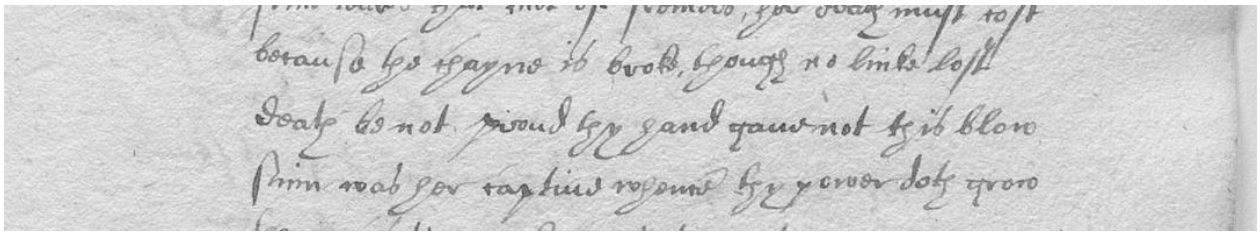 her death must cost
because the chayne is broke, though no linke lost
death be not proud thy hand gaue not this blow
sinn was her captiue whence thy power doth grow